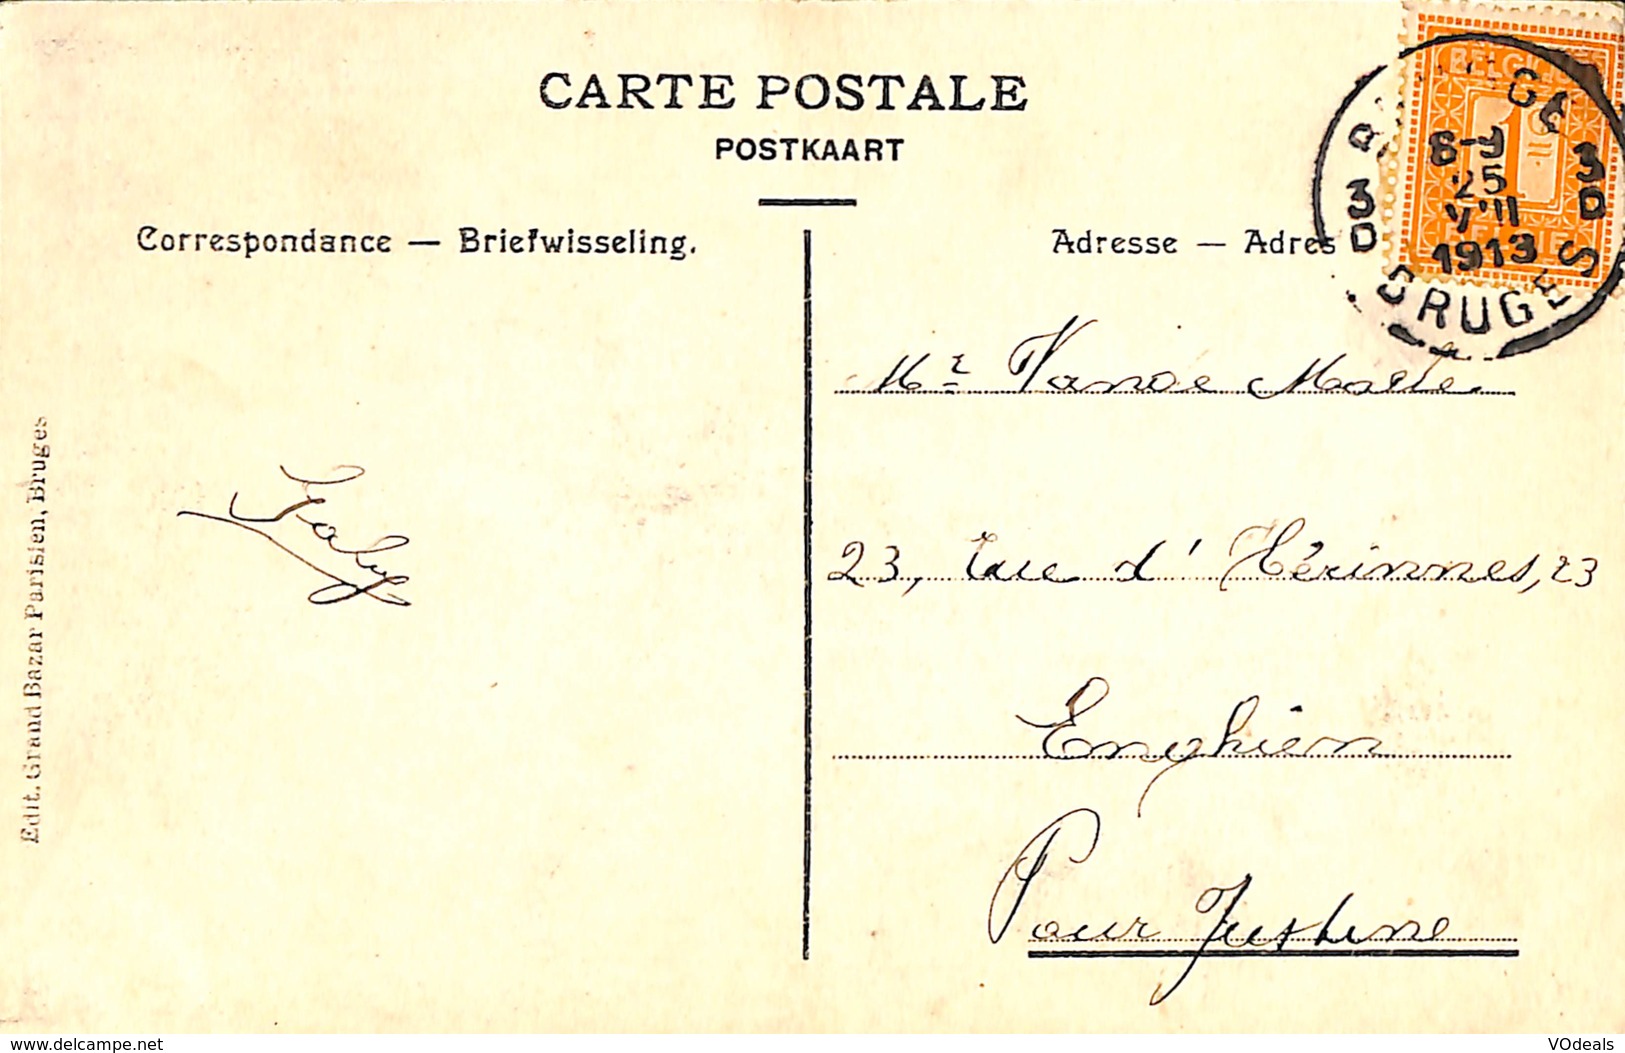 CARTE POSTALE
POSTKAART
Correspondance — Briefwisseling.
Adresse — Adres
BELGIQUE
1
BELGIË
BRUGGE
8-9
25
VII
1913
3D
3D
BRUGES
Mr Vanoé
23, rue d'Hérinnes, 23
Enghien
Pour Justine
Gaby
Edit. Grand Bazar Parisien, Bruges
delcampe.net
VOdeals